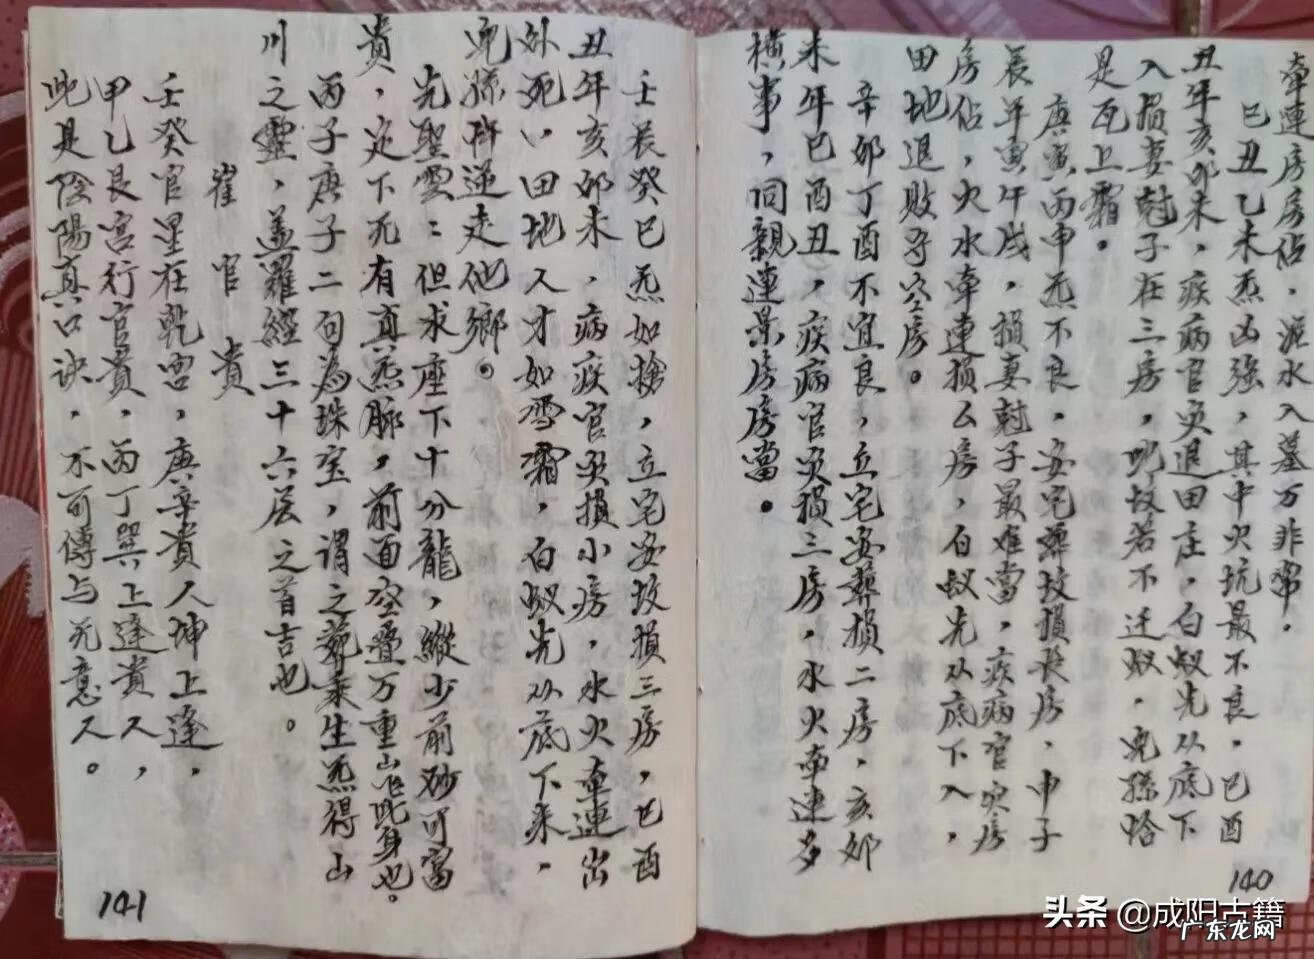 牵連房房佔，泥水入墓万非常。
已丑乙未炁凶強，其中火坑最不良，巳酉
丑年亥卯未，疾病官灾退田庄，白蚁先从底下
入損妻尅子在三房，此坟若不迁蚁，児孫恰
是瓦上霜。
庚寅丙申炁不良，安宅葬坟損長房，申子
辰年寅午戌，損妻尅子最难當，疾病官灾房
房佔，火水牵連損么房，白蚁先从底下入，
田地退敗守空房。
辛卯丁酉不宜良，立宅安葬損二房，亥卯
未年巳酉丑，疾病官灾損三房，水火牵連多
横事，同親連累房房當。
140
壬辰癸巳炁如搶，立宅安坟損三房，巳酉
丑年亥卯未，病疾官灾損小房，水火牵連出
外死，田地人才如雪霜，白蚁先从底下来，
児孫忤逆走他鄉。
先聖雲：但求座下十分龍，縱少前砂可富
貴，定下无有真炁脉，前面空疊万重山此身也。
丙子庚子二句為珠宝，謂之葬乘生炁得山
川之靈，盖羅經三十六层之首吉也。
崔官貴
壬癸官星在乾宫，庚辛貴人坤上逢，
甲乙艮宫行官貴，丙丁巽上逢貴人，
此是陰陽真口诀，不可傳与无意人。
141
头条 @成阳古籍
广东龙网